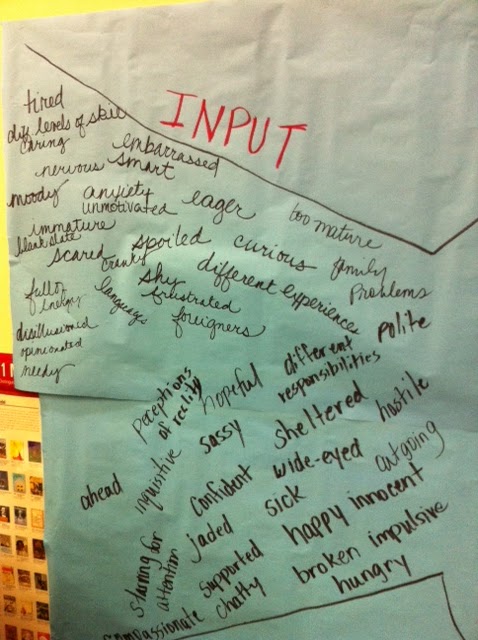 INPUT
tired
diff levels of skill
caring
embarrassed
nervous smart
moody anxiety eager too mature
unmotivated
immature
blank slate spoiled curious family
scared cranky problems
shy different experiences
full of language frustrated polite
energy foreigners
disillusioned
opinionated
needy
different
perceptions hopeful responsibilities
of reality
sassy sheltered hostile
ahead inquisitive confident wide-eyed outgoing
sick
jaded happy innocent
starving for
attention supported broken impulsive
chatty hungry
compassionate